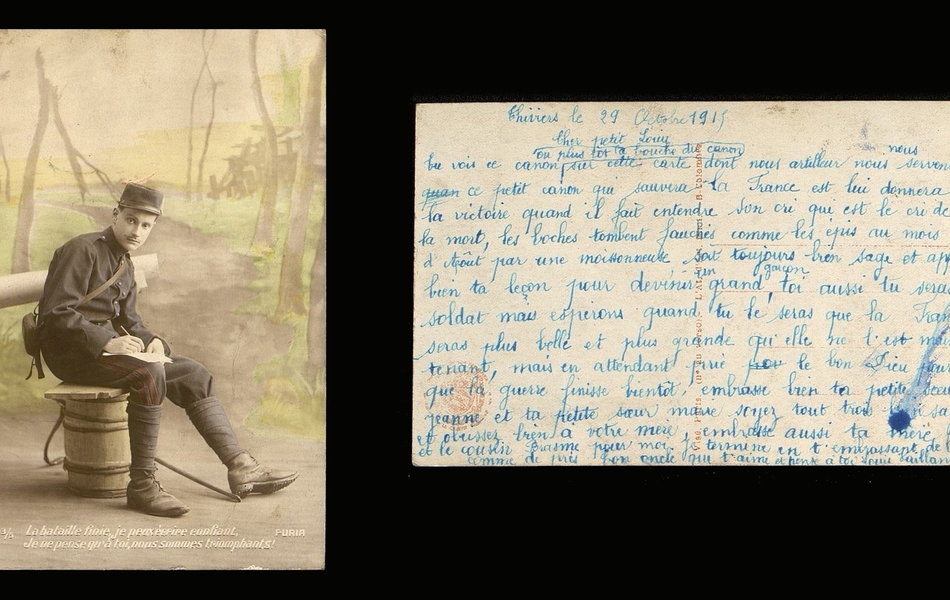 3/4
La bataille finie, je peux écrire confiant,
Je ne pense qu'à toi, nous sommes triomphants!
FURIA
Thiviers le 29 Octobre 1915
Cher petit Louis
ou plus tot la bouche du canon
tu vois ce canon sur cette carte dont nous artilleur nous nous servon
quan ce petit canon qui sauvera la France est lui donnera
la victoire quand il fait entendre son cri qui est le cri de
la mort, les boches tombent fauchés comme les epis au mois
d Août par une moissonneuse soit toujours bien sage et app
bien ta leçon pour devenir un grand garçon, toi aussi tu seras
soldat mais esperons quand tu le seras que la Fran
seras plus belle et plus grande qui elle ne l'est main
tenant, mais en attendant prie le bon Dieu pour
que la guerre finisse bientot, embrasse bien ta petite sœur
jeanne et ta petite sœur marie soyez tout trois sa
et obuissez bien à votre mere, embrasse aussi ta mere
et le cousin Erasme pour moi, je termine en t'embrassant de
comme de près ton oncle qui t'aime et pense à toi Louis